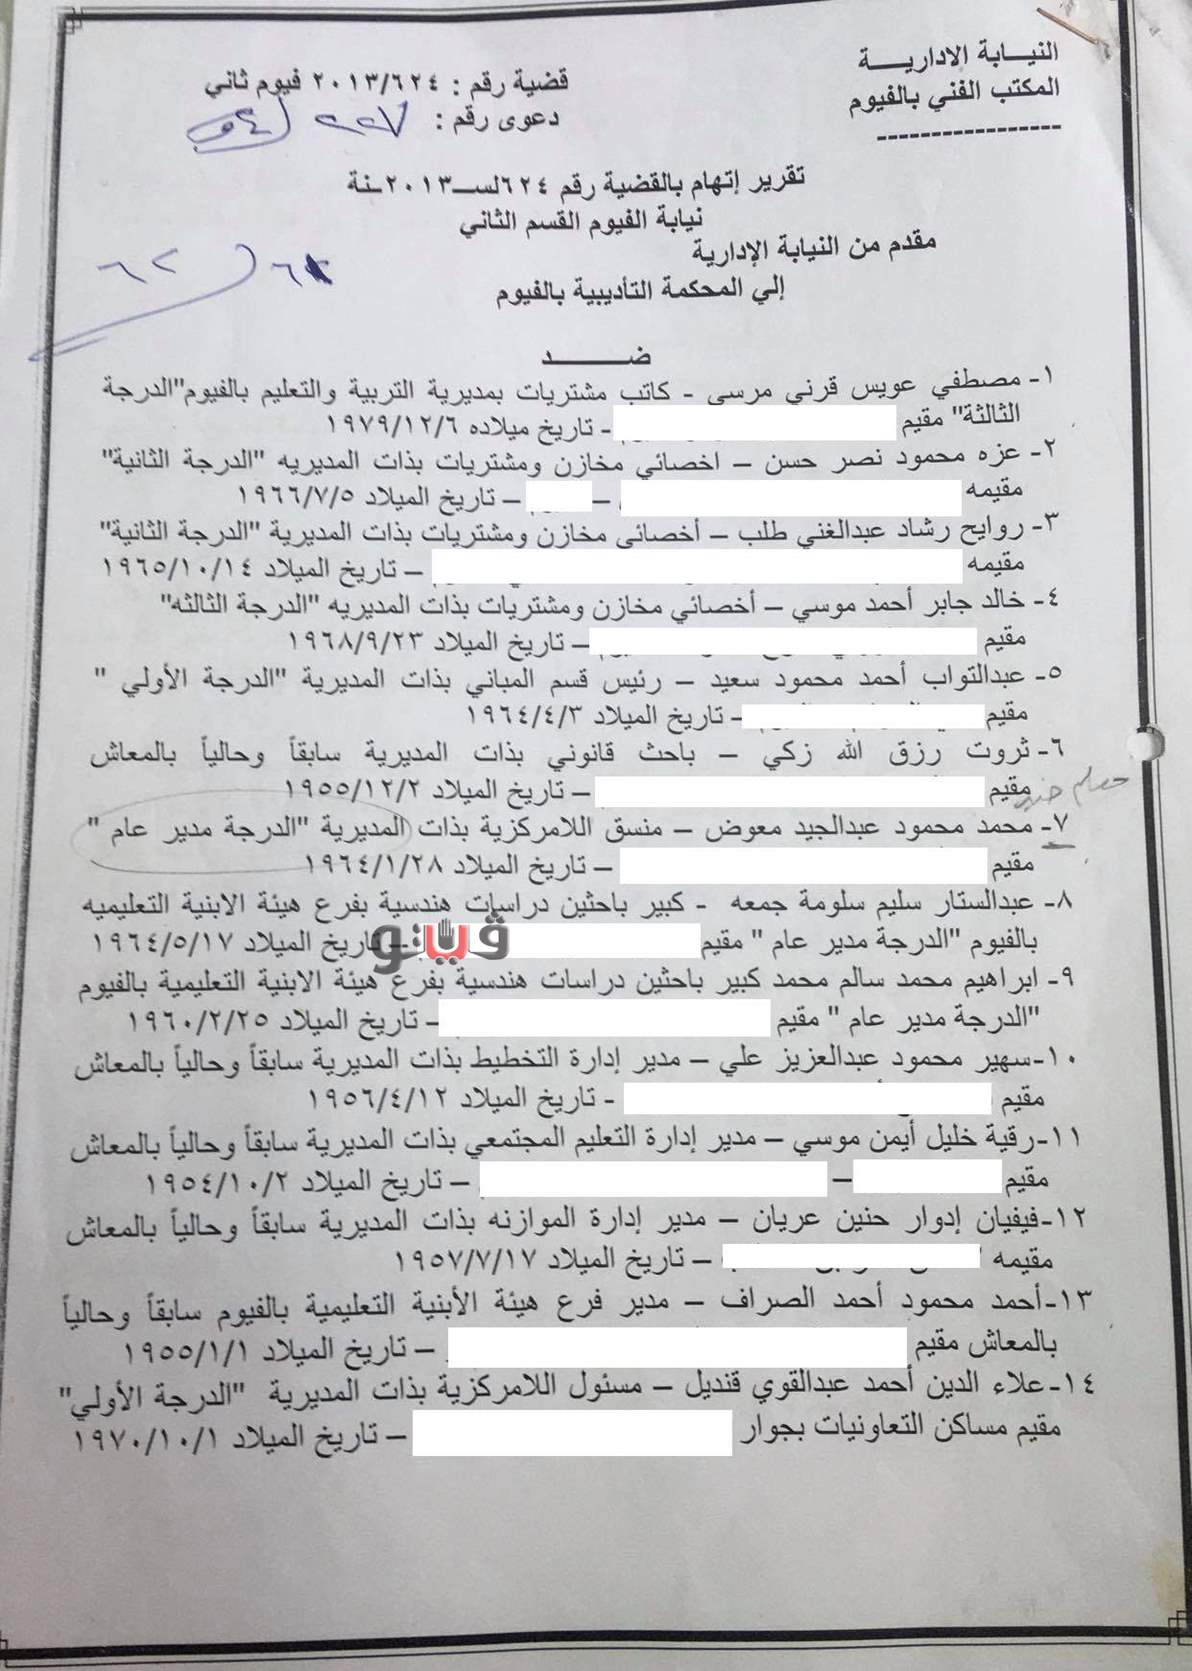 النيـــابة الاداريـــــة
المكتب الفني بالفيوم
قضية رقم : ٢٠١٣/٦٢٤ فيوم ثاني
دعوى رقم : ٢٢٧
تقرير إتهام بالقضية رقم ٦٢٤لســ٢٠١٣ـنة
نيابة الفيوم القسم الثاني
مقدم من النيابة الإدارية
إلي المحكمة التأديبية بالفيوم
ضـــــــــد
١- مصطفي عويس قرني مرسى - كاتب مشتريات بمديرية التربية والتعليم بالفيوم"الدرجة
الثالثة" مقيم - تاريخ ميلاده ١٩٧٩/١٢/٦
٢- عزه محمود نصر حسن – اخصائي مخازن ومشتريات بذات المديريه "الدرجة الثانية"
مقيمه – – تاريخ الميلاد ١٩٦٦/٧/٥
٣- روايح رشاد عبدالغني طلب – أخصائى مخازن ومشتريات بذات المديرية "الدرجة الثانية"
مقيمه – تاريخ الميلاد ١٩٦٥/١٠/١٤
٤- خالد جابر أحمد موسي – أخصائي مخازن ومشتريات بذات المديريه "الدرجة الثالثه"
مقيم – تاريخ الميلاد ١٩٦٨/٩/٢٣
٥- عبدالتواب أحمد محمود سعيد – رئيس قسم المباني بذات المديرية "الدرجة الأولي "
مقيم - تاريخ الميلاد ١٩٦٤/٤/٣
٦- ثروت رزق الله زكي – باحث قانوني بذات المديرية سابقاً وحالياً بالمعاش
مقيم – تاريخ الميلاد ١٩٥٥/١٢/٢
٧- محمد محمود عبدالجيد معوض – منسق اللامركزية بذات المديرية "الدرجة مدير عام "
مقيم – تاريخ الميلاد ١٩٦٤/١/٢٨
٨- عبدالستار سليم سلومة جمعه - كبير باحثين دراسات هندسية بفرع هيئة الابنية التعليميه
بالفيوم "الدرجة مدير عام " مقيم – تاريخ الميلاد ١٩٦٤/٥/١٧
ڤيتو
٩- ابراهيم محمد سالم محمد كبير باحثين دراسات هندسية بفرع هيئة الابنية التعليمية بالفيوم
"الدرجة مدير عام " مقيم - تاريخ الميلاد ١٩٦٠/٢/٢٥
١٠-سهير محمود عبدالعزيز علي – مدير إدارة التخطيط بذات المديرية سابقاً وحالياً بالمعاش
مقيم - تاريخ الميلاد ١٩٥٦/٤/١٢
١١-رقية خليل أيمن موسي – مدير إدارة التعليم المجتمعي بذات المديرية سابقاً وحالياً بالمعاش
مقيم – – تاريخ الميلاد ١٩٥٤/١٠/٢
١٢-فيفيان إدوار حنين عريان – مدير إدارة الموازنه بذات المديرية سابقاً وحالياً بالمعاش
مقيمه – تاريخ الميلاد ١٩٥٧/٧/١٧
١٣-أحمد محمود أحمد الصراف – مدير فرع هيئة الأبنية التعليمية بالفيوم سابقاً وحالياً
بالمعاش مقيم – تاريخ الميلاد ١٩٥٥/١/١
١٤-علاء الدين أحمد عبدالقوي قنديل – مسئول اللامركزية بذات المديرية "الدرجة الأولي"
مقيم مساكن التعاونيات بجوار – تاريخ الميلاد ١٩٧٠/١٠/١